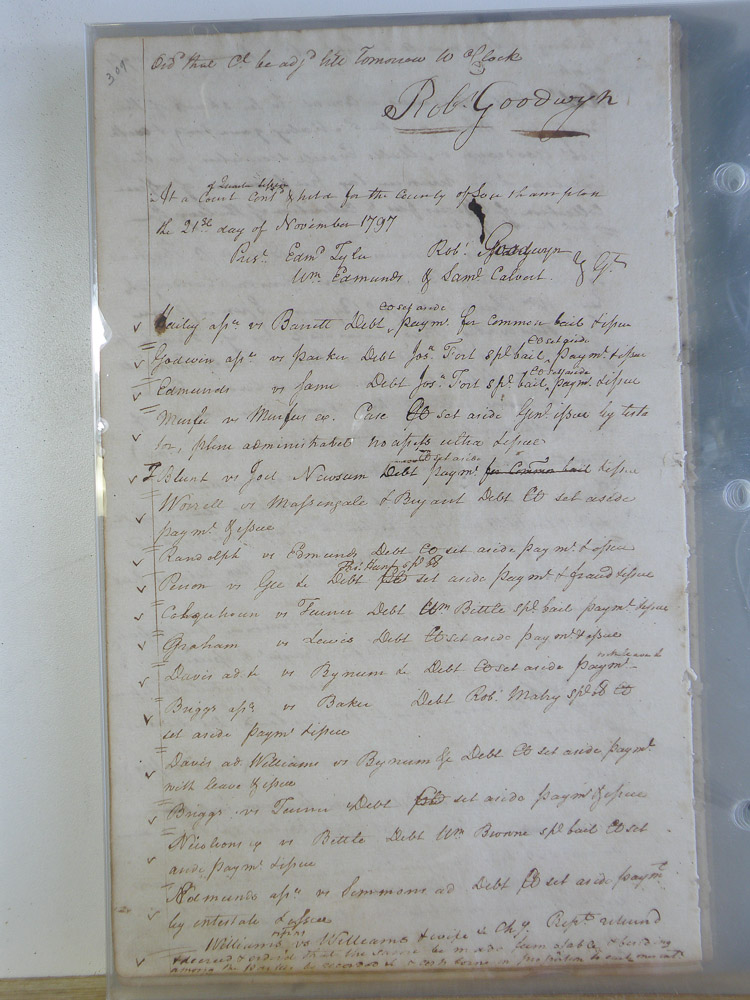 301
Ord that Ct. be adjd till Tomorrow 10 oClock
Robt Goodwyn
of Quarter Session
At a Court Contd & held for the County of Southampton
the 21st day of November 1797
Prest. Edmd Tyler Robt. Goodwyn
Wm. Edmunds & Saml Calvert } Gt.
CO set aside
Hailey assee vs Barrett Debt paymt for common bail & issue
CO set aside
Godwin assee vs Parker Debt Josa Fort spl bail, paymt & issue
CO set aside
Edmunds vs Same Debt Josa Fort spl bail, paymt & issue
Murfee vs Murfees ex. Case CO set aside Genl issue by testa
tor, plene administravit no assets ultra & issue
CO set aside
Blunt vs Joel Newsum Debt paymt for Common bail & issue
Worrell vs Massengale & Bryant Debt CO set aside
paymt & issue
Randolph vs Edmunds Debt CO set aside paymt & issue
spl bl
Person vs Gee &c Debt CO set aside paymt & fraud & issue
Colquhoun vs Turner Debt Wm Bettle spl bail paymt & issue
Graham vs Lewis Debt CO set aside paymt & issue
Davis ad. &c vs Bynum &c Debt CO set aside paymt
Briggs assee vs Baker Debt Robt Mabry spl bl CO
set aside paymt & issue
Davis ad. Williams vs Bynum &c Debt CO set aside paymt.
with leave & issue
Briggs vs Turner Debt CO set aside paymt & issue
Nicolsons ex vs Bettle Debt Wm Browne spl bail CO set
aside paymt & issue
Edmunds assee vs Simmons ad Debt CO set aside paymt
by intestate & issue
Williams vs Williams & wife &c Chy. Rept. returnd
& decreed & ordered that the same be made &
among the parties be recorded &